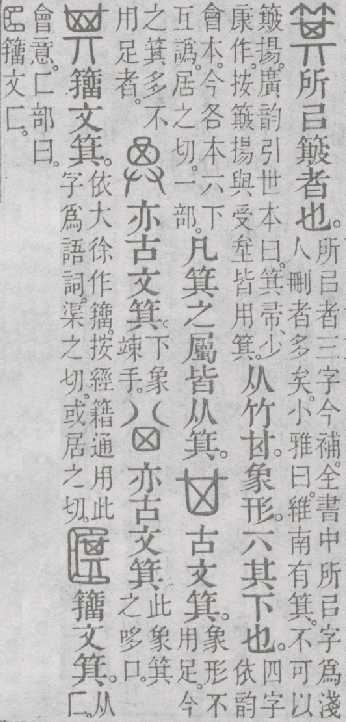 所㠯簸者也。所㠯者三字今補。全書中所㠯字爲淺
人刪者多矣。小雅曰。維南有箕。不可以
簸揚。廣韵引世本曰。箕帚少
康作。按簸揚與受𡊅皆用箕。从竹甘。象形。六其下也。四字
依韵
會本。今各本六下
互譌。居之切。一部。凡箕之屬皆从箕。古文箕。象形不
用足。今
之箕多不
用足者。亦古文箕。下象
竦手。亦古文箕。此象箕
之哆口。
籒文箕。依大徐作籒。按經籍通用此
字爲語詞。渠之切。或居之切。籒文箕。从
匚。
會意。匚部曰。
籒文匚。